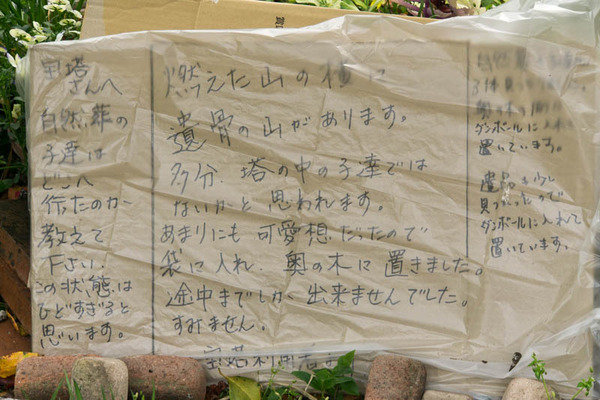 宝塔
さんへ
自然葬の
子達は
どこへ
行たのか
教えて
下さい.
この状態は
ひどすぎると
思います。
燃えた山の横に
遺骨の山があります。
多分、塔の中の子達では
ないかと思われます。
あまりにも可愛想だったので
袋に入れ、奥の木に置きました。
途中までしか出来ませんでした。
すみません.
宝塔利用者
ダンボールに入れ
置いています。
見つかったので
ダンボールに入れて
置いています。